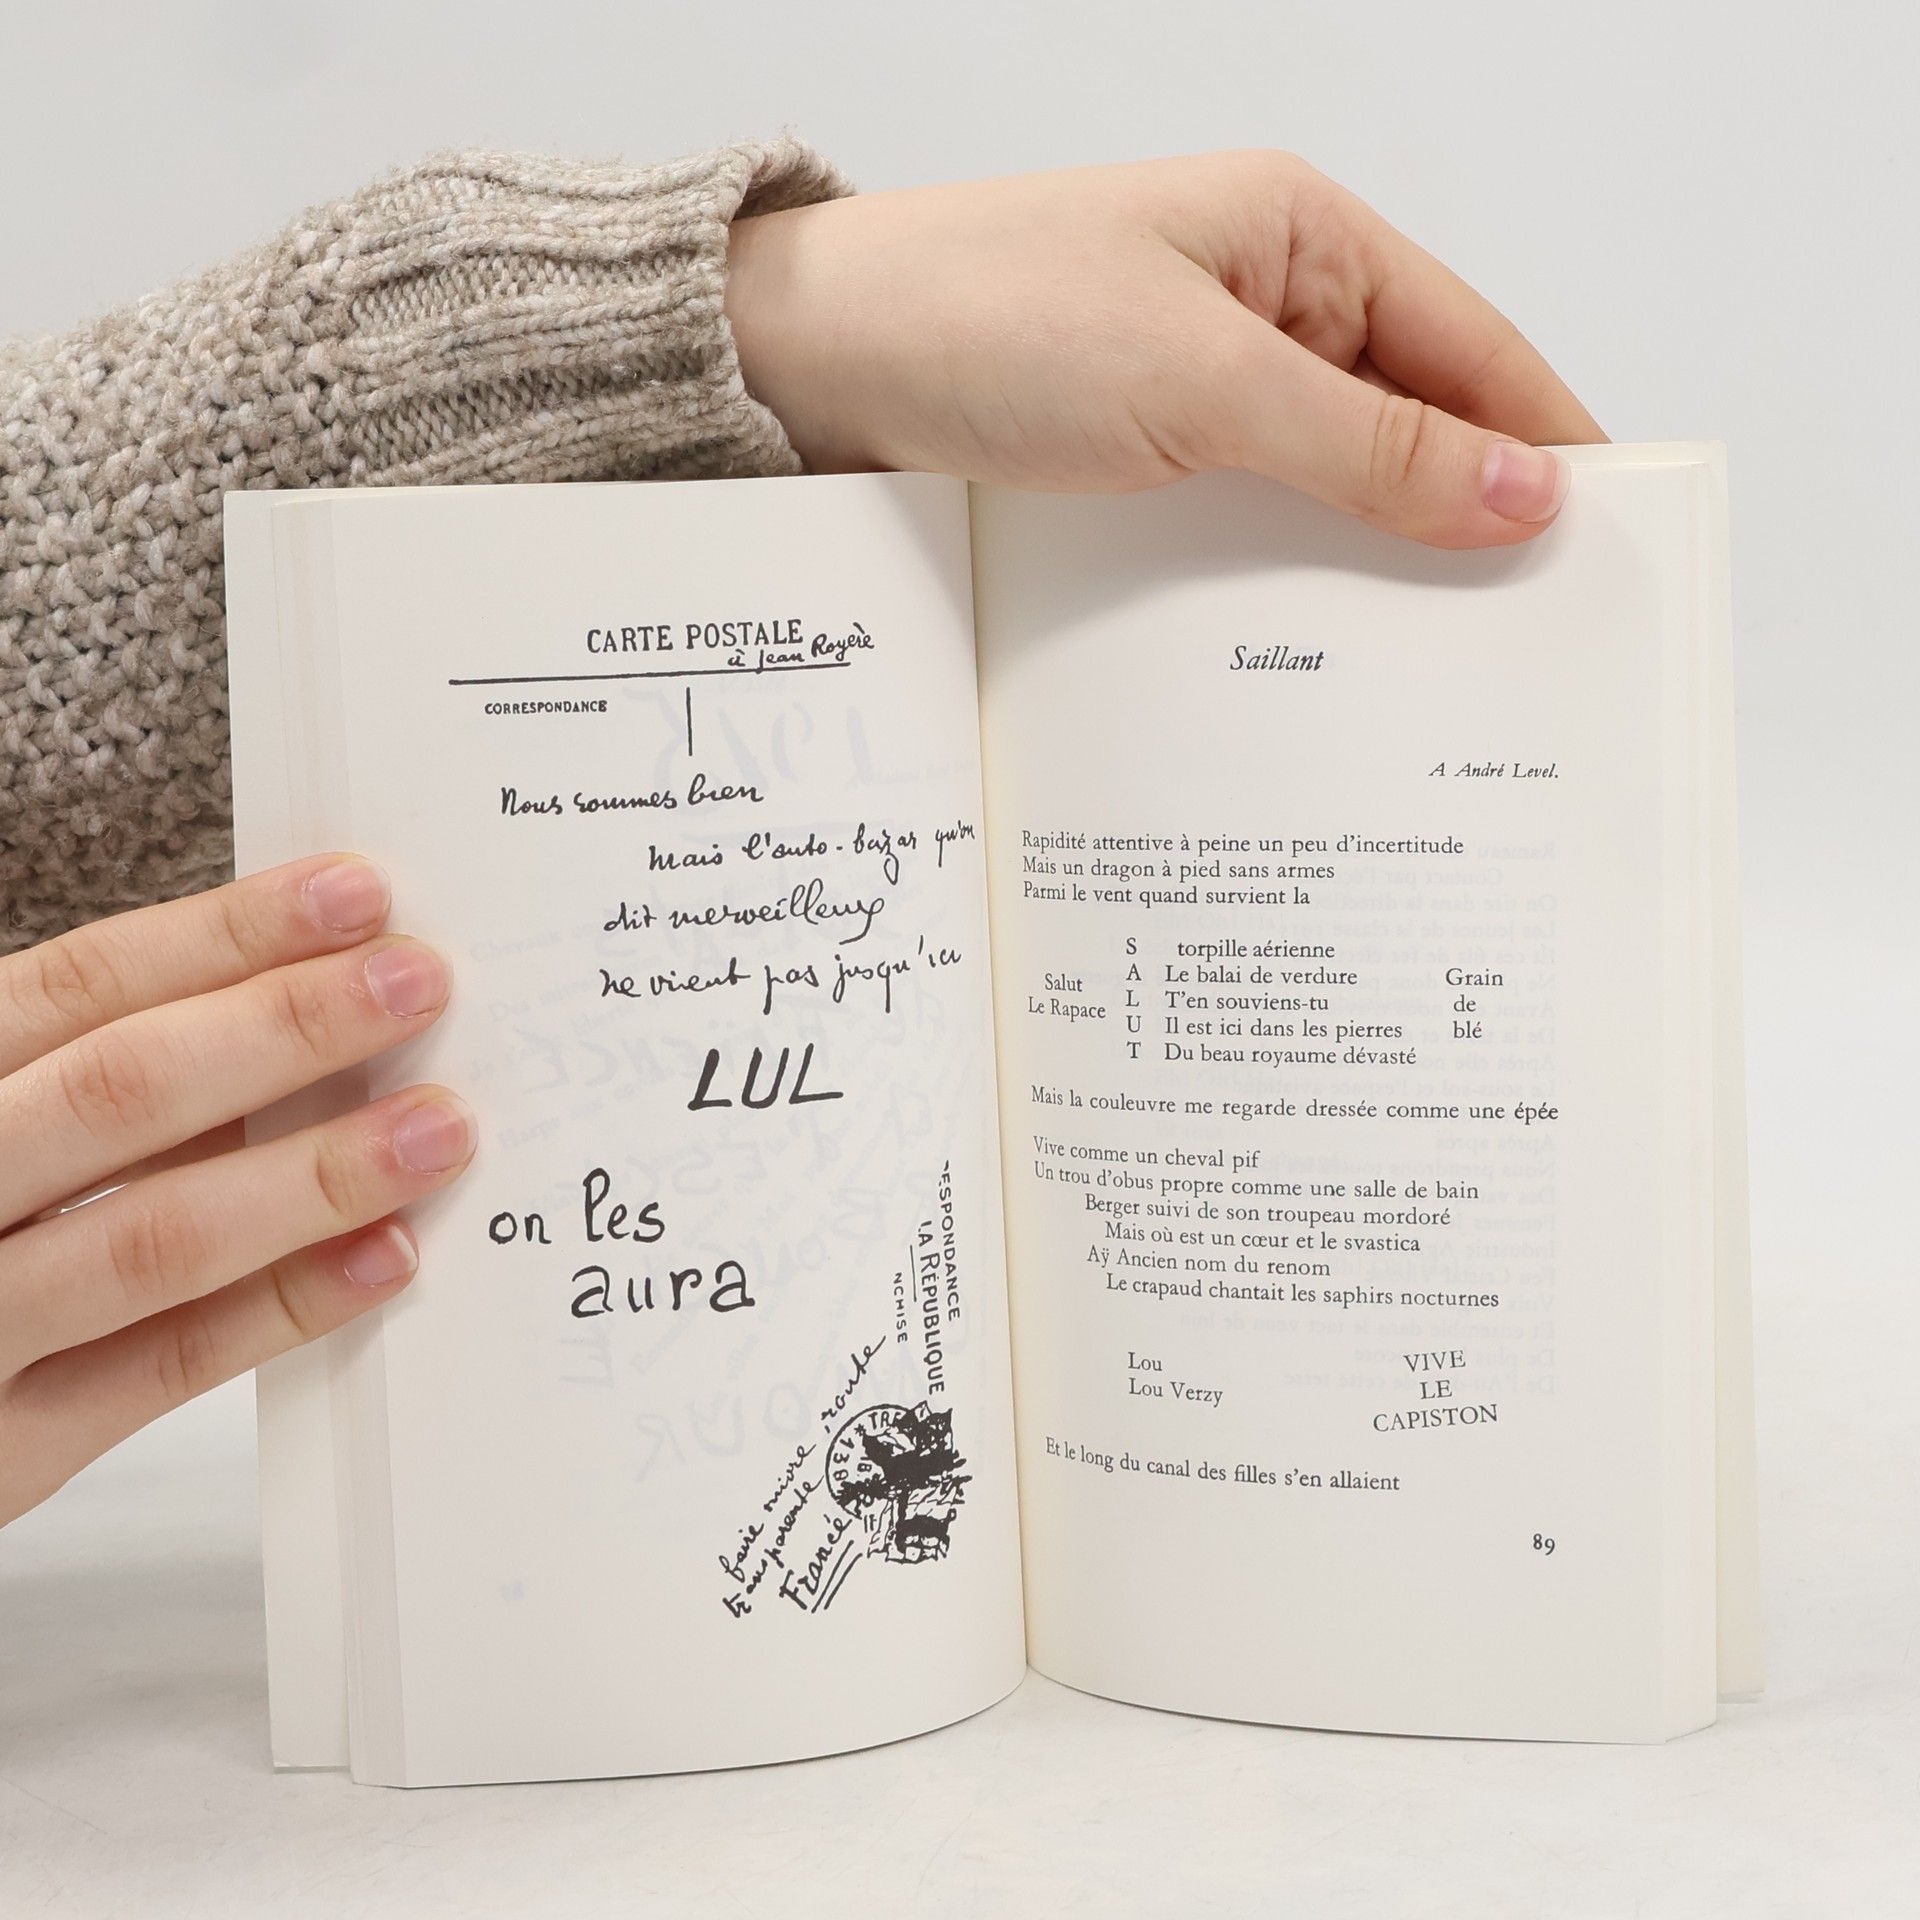 CARTE POSTALE
à Jean Royère
CORRESPONDANCE
Nous sommes bien
mais l'auto-bazar qu'on
dit merveilleux
ne vient pas jusqu'ici
LUL
on les
aura
ESPONDANCE
LA RÉPUBLIQUE
NCHISE
faire suivre route
transparente
France
TRE
*138
Saillant
A André Level.
Rapidité attentive à peine un peu d'incertitude
Mais un dragon à pied sans armes
Parmi le vent quand survient la
S torpille aérienne
A Le balai de verdure Grain
Salut
L T'en souviens-tu de
Le Rapace
U Il est ici dans les pierres blé
T Du beau royaume dévasté
Mais la couleuvre me regarde dressée comme une épée
Vive comme un cheval pif
Un trou d'obus propre comme une salle de bain
Berger suivi de son troupeau mordoré
Mais où est un cœur et le svastica
Aÿ Ancien nom du renom
Le crapaud chantait les saphirs nocturnes
Lou VIVE
Lou Verzy LE
CAPISTON
Et le long du canal des filles s'en allaient
89